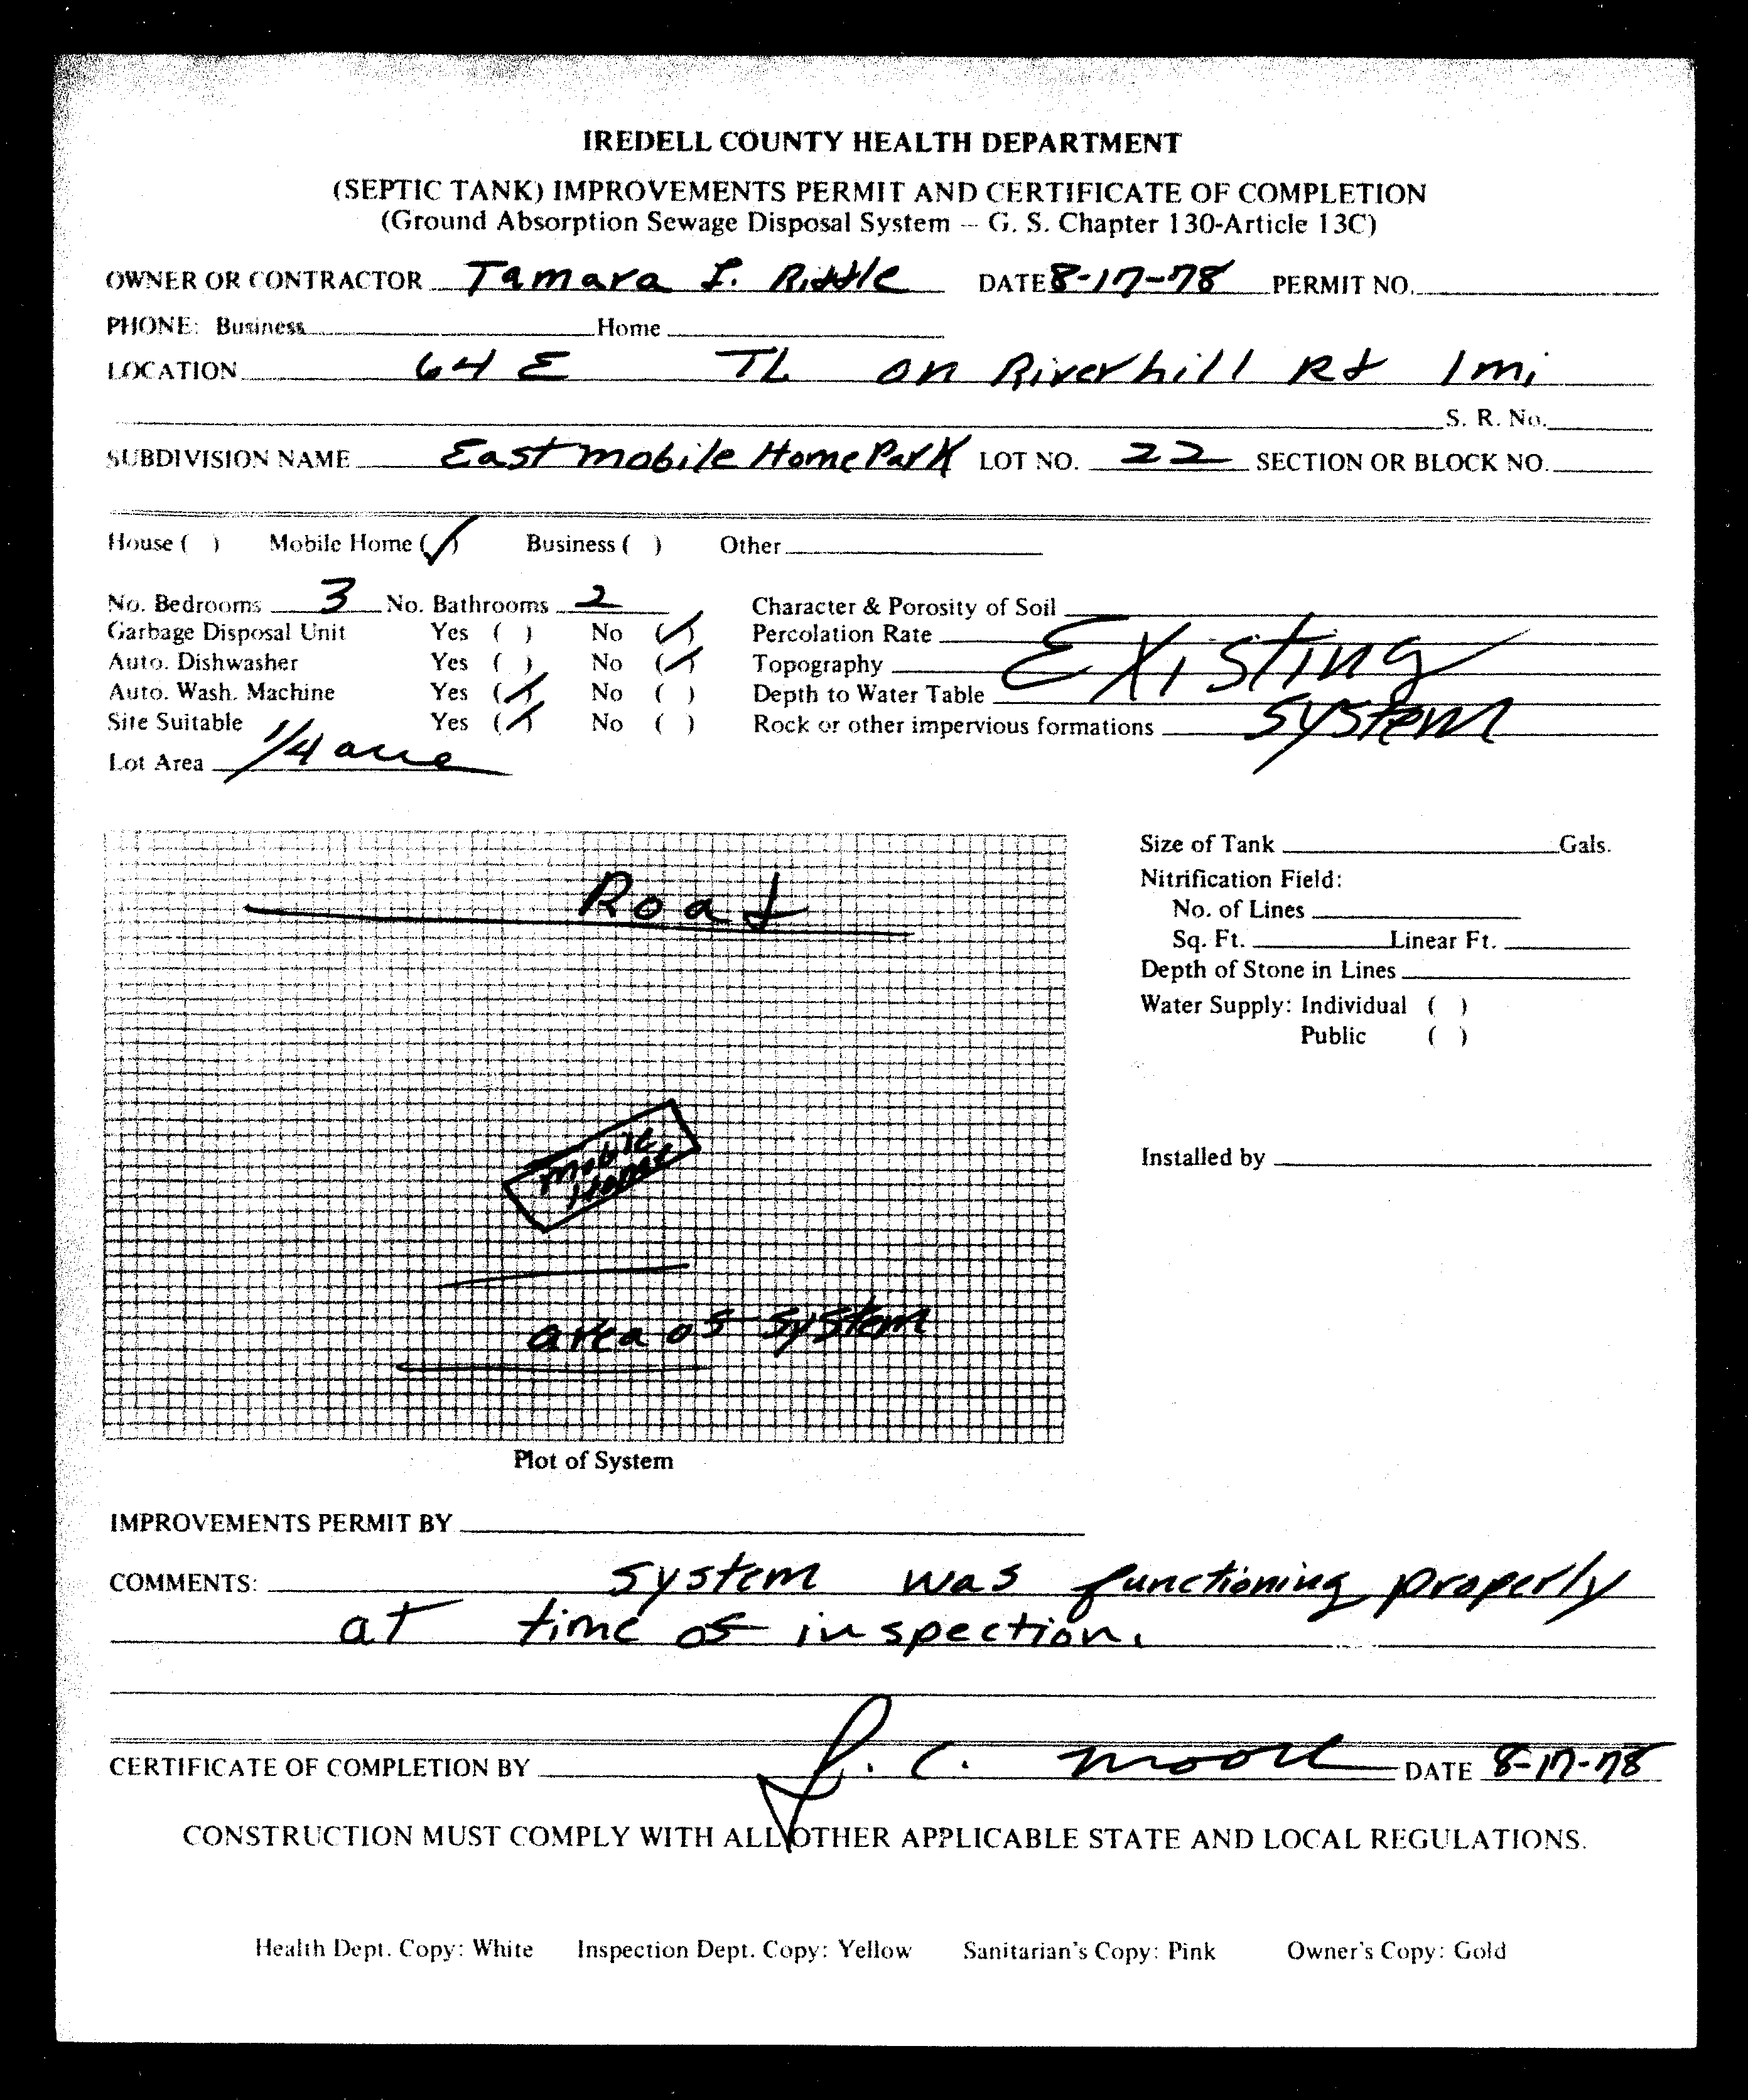 IREDELL COUNTY HEALTH DEPARTMENT
(SEPTIC TANK) IMPROVEMENTS PERMIT AND CERTIFICATE OF COMPLETION
(Ground Absorption Sewage Disposal System -- G. S. Chapter 130-Article 13C)
OWNER OR CONTRACTOR Tamara I. Riddle DATE 8-17-78 PERMIT NO.
PHONE: Business Home
LOCATION 64 E TL on Riverhill Rd 1 mi
S. R. No.
SUBDIVISION NAME East mobile Home Park LOT NO. 22 SECTION OR BLOCK NO.
House ( ) Mobile Home (✓) Business ( ) Other
No. Bedrooms 3 No. Bathrooms 2 Character & Porosity of Soil
Garbage Disposal Unit Yes ( ) No (✓) Percolation Rate Existing
Auto. Dishwasher Yes ( ) No (✓) Topography
Auto. Wash. Machine Yes (✓) No ( ) Depth to Water Table system
Site Suitable Yes (✓) No ( ) Rock or other impervious formations
Lot Area 1/4 acre
Road
mobile
Home
area of system
Plot of System
Size of Tank Gals.
Nitrification Field:
No. of Lines
Sq. Ft. Linear Ft.
Depth of Stone in Lines
Water Supply: Individual ( )
Public ( )
Installed by
IMPROVEMENTS PERMIT BY
COMMENTS: system was functioning properly
at time of inspection.
CERTIFICATE OF COMPLETION BY J. C. Moore DATE 8-17-78
CONSTRUCTION MUST COMPLY WITH ALL OTHER APPLICABLE STATE AND LOCAL REGULATIONS.
Health Dept. Copy: White Inspection Dept. Copy: Yellow Sanitarian's Copy: Pink Owner's Copy: Gold